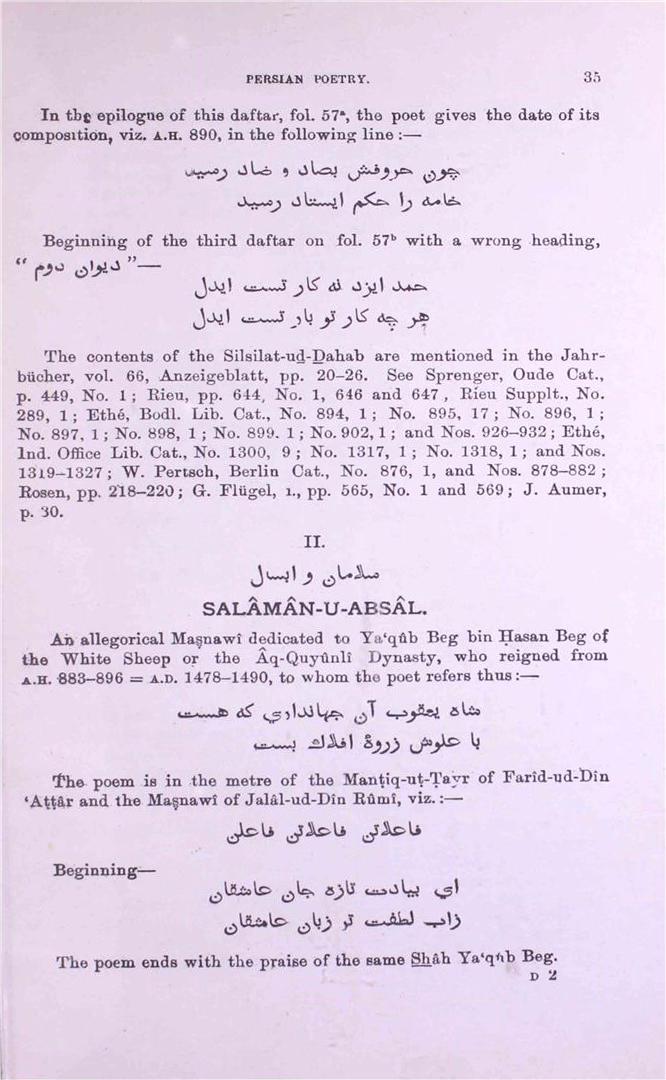 PERSIAN POETRY. 35
In the epilogue of this daftar, fol. 57ᵃ, the poet gives the date of its
composition, viz. A.H. 890, in the following line :—
چون حروفش بصاد و ضاد رسيد
خامه را حكم ايستاد رسيد
Beginning of the third daftar on fol. 57ᵇ with a wrong heading,
“ ديوان دوم ”—
حمد ايزد نه كار تست ايدل
هر چه كار تو بار تست ايدل
The contents of the Silsilat-ud-Dahab are mentioned in the Jahr-
bücher, vol. 66, Anzeigeblatt, pp. 20–26. See Sprenger, Oude Cat.,
p. 449, No. 1; Rieu, pp. 644, No. 1, 646 and 647, Rieu Supplt., No.
289, 1; Ethé, Bodl. Lib. Cat., No. 894, 1; No. 895, 17; No. 896, 1;
No. 897, 1; No. 898, 1; No. 899. 1; No. 902, 1; and Nos. 926–932; Ethé,
Ind. Office Lib. Cat., No. 1300, 9; No. 1317, 1; No. 1318, 1; and Nos.
1319–1327; W. Pertsch, Berlin Cat., No. 876, 1, and Nos. 878–882;
Rosen, pp. 218–220; G. Flügel, I., pp. 565, No. 1 and 569; J. Aumer,
p. 30.
II.
سلامان و ابسال
SALÂMÂN-U-ABSÂL.
An allegorical Maṣnawî dedicated to Ya‘qûb Beg bin Ḥasan Beg of
the White Sheep or the Âq-Quyûnlî Dynasty, who reigned from
A.H. 883–896 = A.D. 1478–1490, to whom the poet refers thus :—
شاه يعقوب آن جهانداري كه هست
با علوش زروۀ افلاك بست
The poem is in the metre of the Manṭiq-uṭ-Ṭayr of Farîd-ud-Dîn
‘Aṭṭâr and the Maṣnawî of Jalâl-ud-Dîn Rûmî, viz. :—
فاعلاتن فاعلاتن فاعلن
Beginning—
اي بيادت تازه جان عاشقان
زاب لطفت تر زبان عاشقان
The poem ends with the praise of the same Shâh Ya‘qûb Beg.
D 2